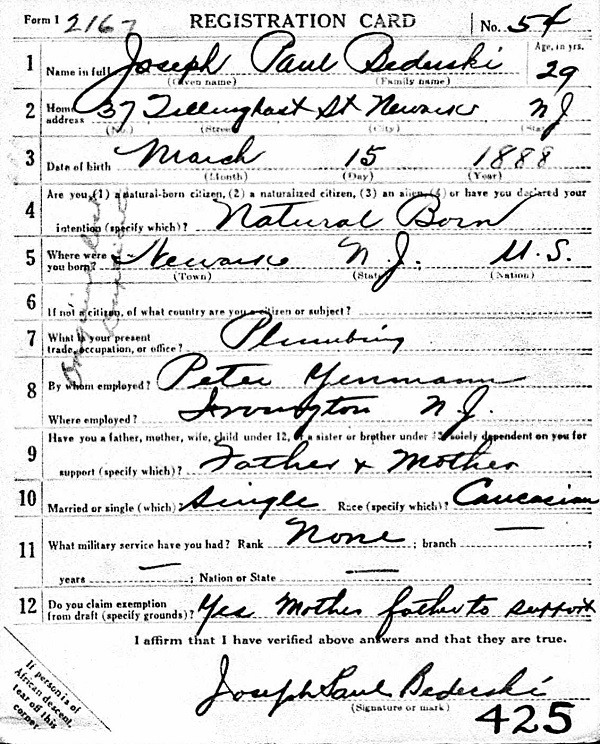 Form 1 2167 REGISTRATION CARD No. 54
1 Name in full Joseph Paul Bederski Age, in yrs. 29
(Given name) (Family name)
2 Home address 37 Tillinghast St Newark N J
(No.) (Street) (City) (State)
3 Date of birth March 15 1888
(Month) (Day) (Year)
4 Are you (1) a natural-born citizen, (2) a naturalized citizen, (3) an alien, (4) or have you declared your
intention (specify which)? Natural Born
5 Where were you born? Newark N.J. U.S.
(Town) (State) (Nation)
6 If not a citizen, of what country are you a citizen or subject?
7 What is your present trade, occupation, or office? Plumbing
8 By whom employed? Peter
Where employed? Irvington N.J.
9 Have you a father, mother, wife, child under 12, or a sister or brother under 12, solely dependent on you for
support (specify which)? Father & Mother
10 Married or single (which)? Single Race (specify which)? Caucasian
11 What military service have you had? Rank None ; branch — ;
years — ; Nation or State —
12 Do you claim exemption from draft (specify grounds)? Yes Mother father to support
I affirm that I have verified above answers and that they are true.
Joseph Paul Bederski
(Signature or mark)
425
If person is of
African descent,
tear off this
corner